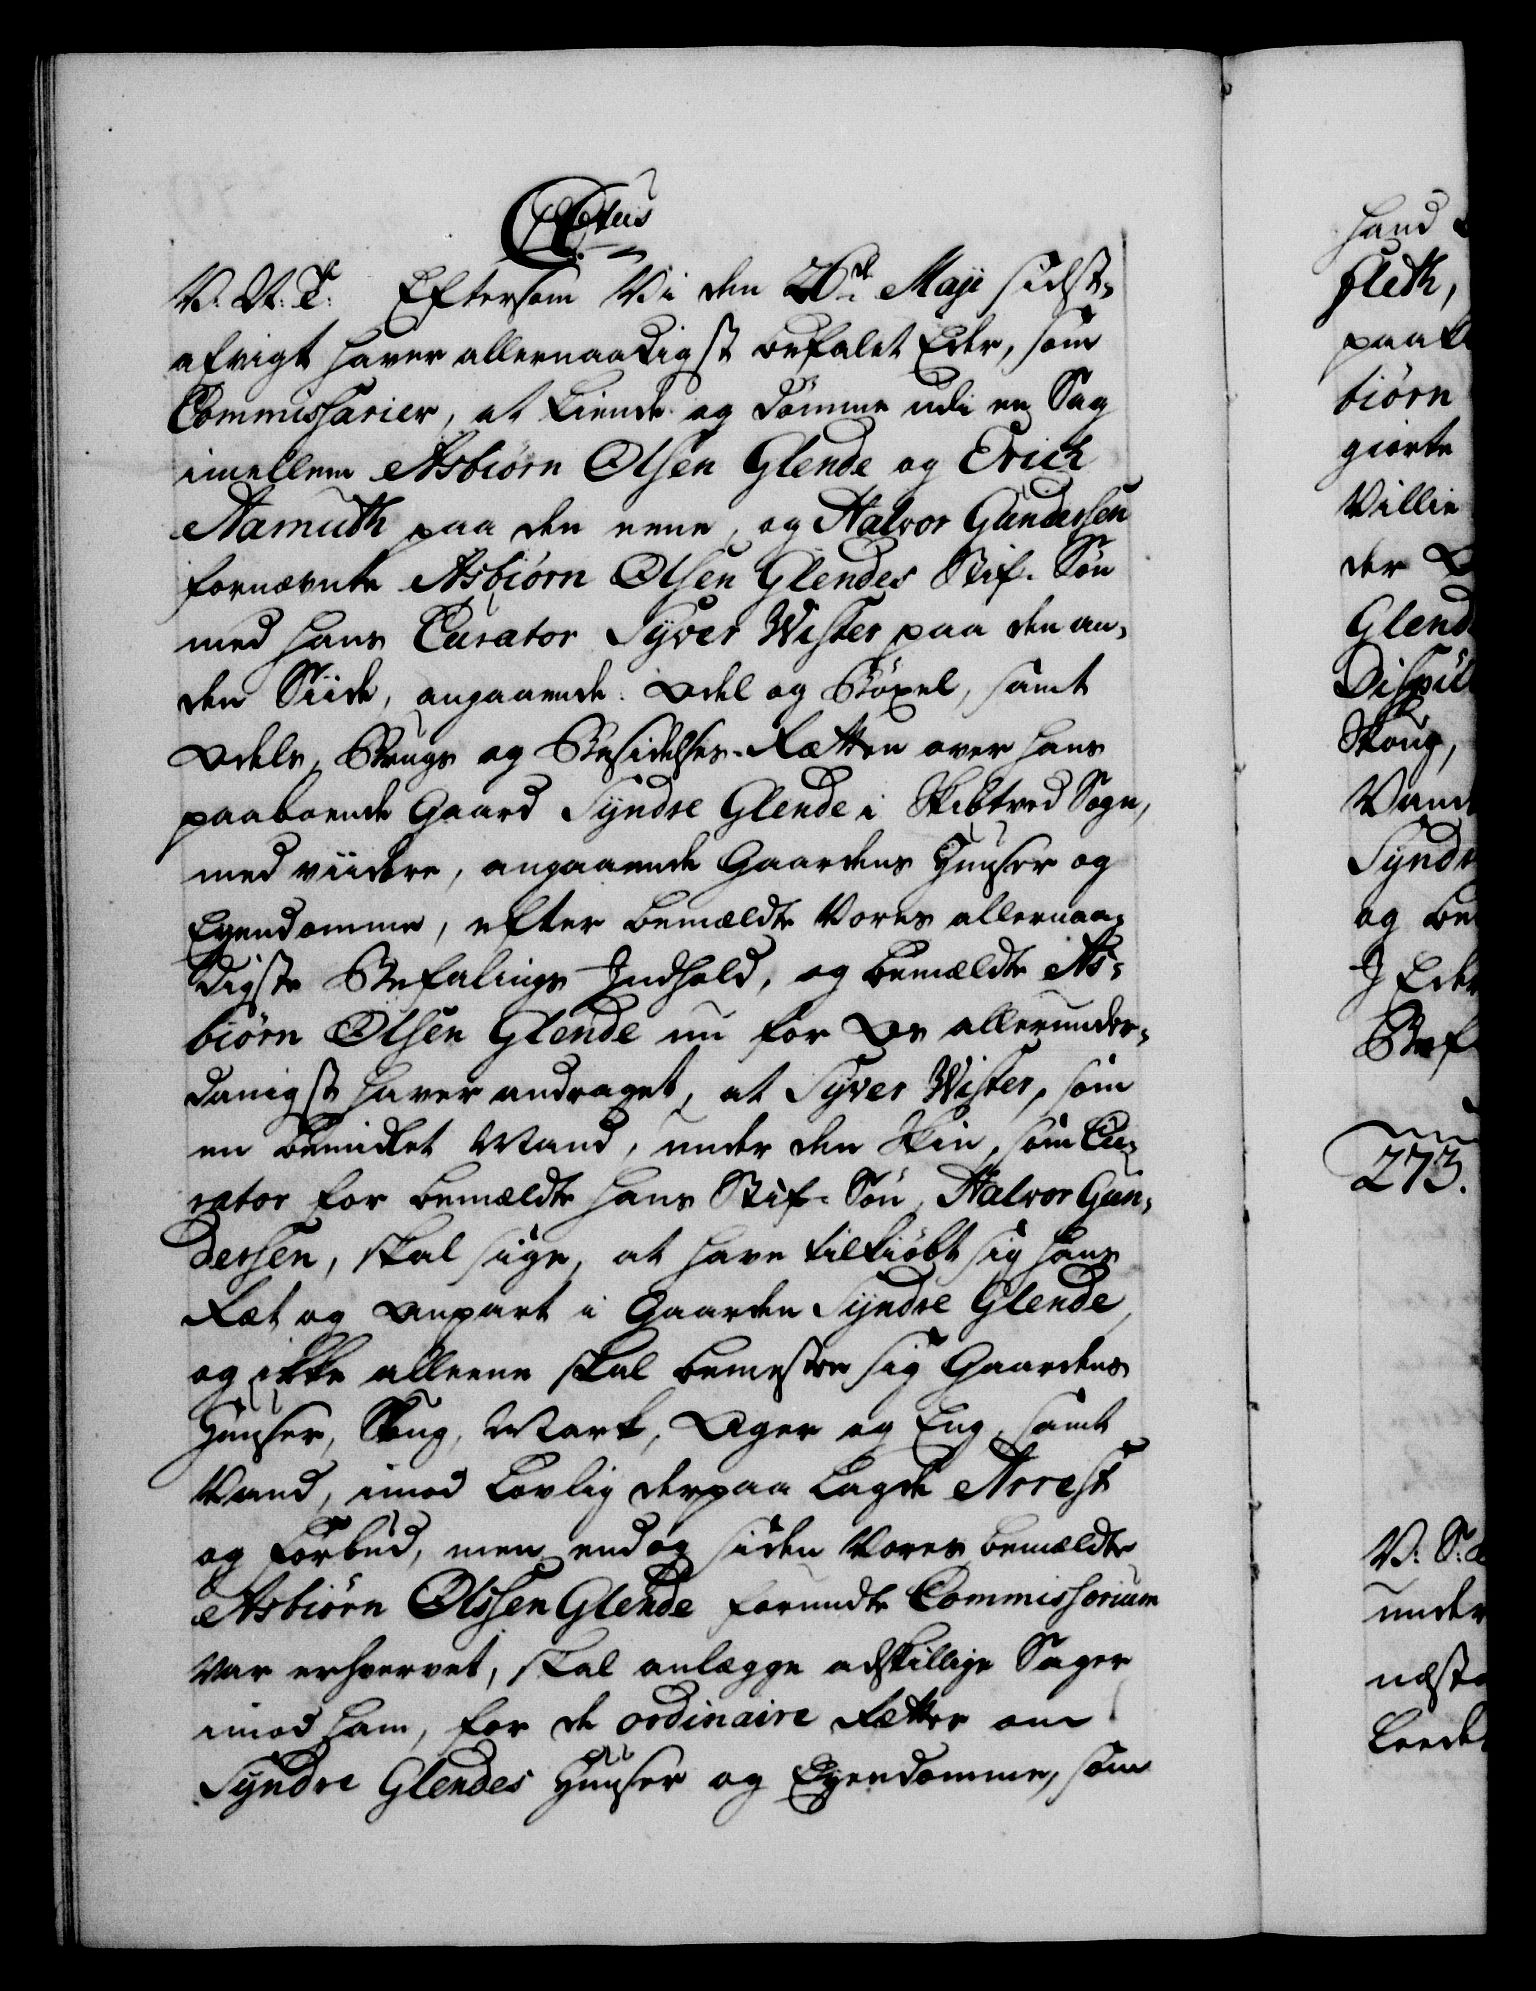 C6tus
V. U. T. Eftersom Vi den 26de Maji sidst-
afvigt haver allernaadigst befalet Eder, som
Commissarier, at kiende og dømme udi en Sag
imellem Asbiørn Olsen Glende og Erich
Aamuth paa den eene, og Halvor Gundersen
fornævnte Asbiørn Olsen Glendes Stif-Søn
med hans Curator Syver Wister paa den an-
den Siide, angaaende Odel og Skøxel, samt
Odels, Brugs og Besidelses-Rætten over hans
paaboende Gaard Syndre Glende i Skibtved Sogn,
med viidere, angaaende Gaardens Huuser og
Eyendomme, efter bemældte Vores allernaa-
digste Befalings Indhold, og bemældte As-
biørn Olsen Glende nu for Os allerunder-
danigst haver andraget, at Syver Wister, som
en bemidlet Mand, under den Skin, som Cu-
rator for bemældte hans Stif-Søn, Halvor Gun-
dersen, skal sige, at have tilkiøbt sig hans
Ræt og Anpart i Gaarden Syndre Glende,
og ikke alleene skal bemestre sig Gaardens
Huuser, Skoug, Mark, Ager og Eng, samt
Vand, imod Lovlig derpaa lagde Arrest
og Forbud, men endog siden Vores bemældte
Asbiørn Olssen Glende forundte Commissorium
var erhvervet, skal anlægge adskillige Sager
imod ham, for de ordinaire Rætter om
Syndre Glendes Huuser og Eyendomme, som
hand
Fleth,
paak
biørn
giorte
Villie
der
Glend
Disput
Skoug,
Vand
Syndr
og be
I Eder
Bef
273.
V. S.
under
næst
Leede